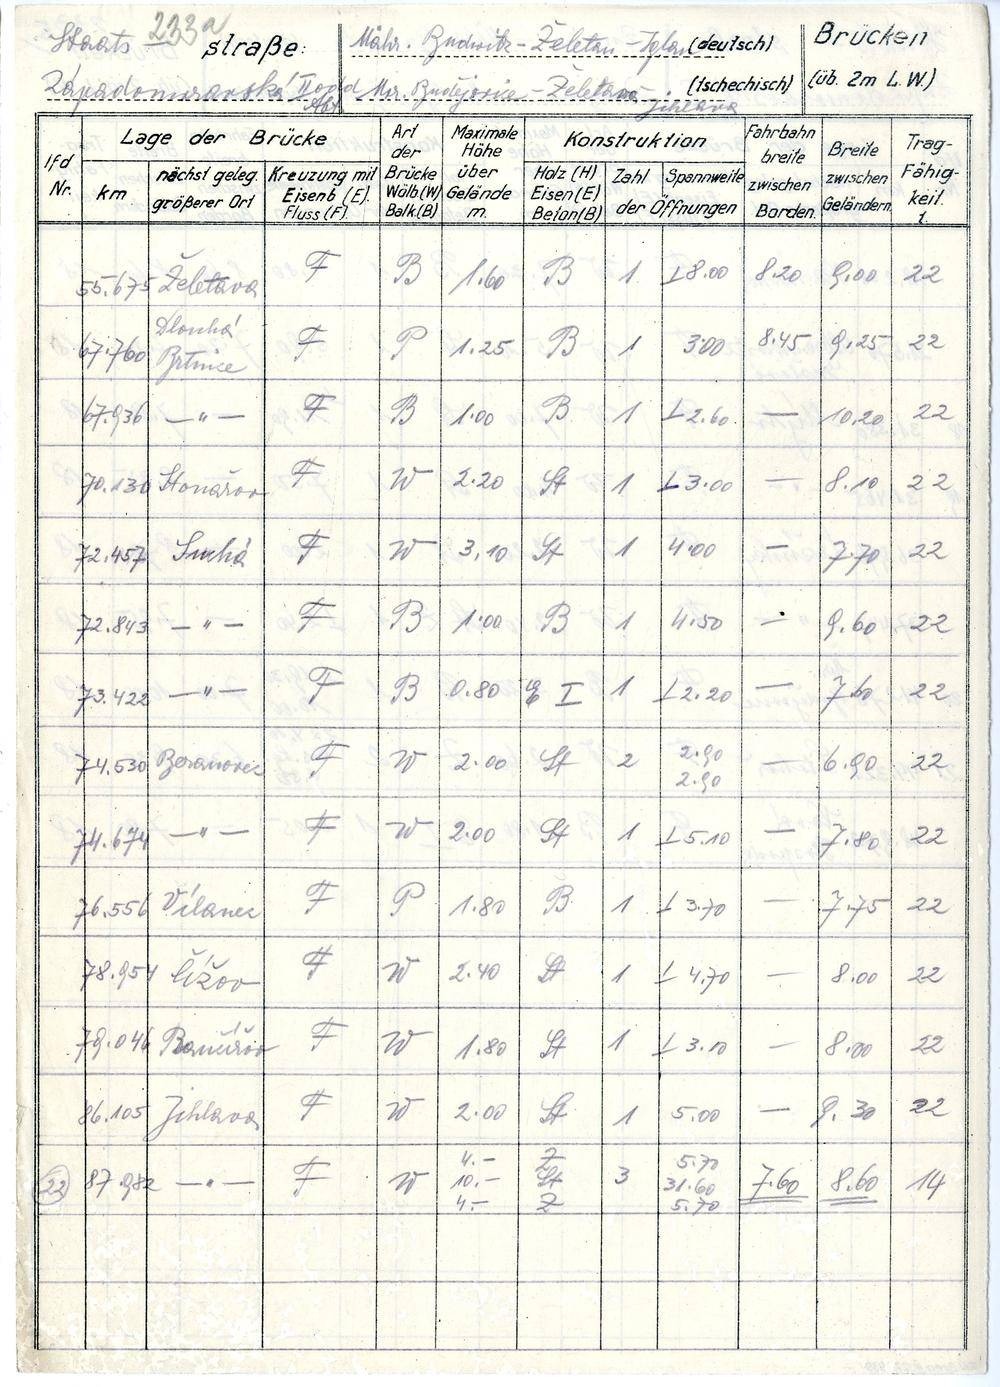 Staats 233a straße: Mähr. Budwitz - Želetau - Iglau (deutsch) Brücken
Západomoravská II odd Mor. Budějovice - Želetava - Jihlava (tschechisch) (üb. 2m L.W.)
lfd Nr. Lage der Brücke Art der Brücke Wölb.(W) Balk.(B) Maximale Höhe über Gelände m. Konstruktion Fahrbahn breite zwischen Borden. Breite zwischen Geländern. Trag- Fähig- keit. t.
km. nächst geleg. größerer Ort Kreuzung mit Eisenb (E). Fluss (F). Holz (H) Eisen (E) Beton (B) Zahl Spannweite der Öffnungen
55.675 Želetava F B 1.60 B 1 ⊥8.00 8.20 9.00 22
67.760 Dlouhá Brtnice F P 1.25 B 1 3.00 8.45 9.25 22
67.936 — " — F B 1.00 B 1 ⊥2.60 — 10.20 22
70.130 Stonařov F W 2.20 St 1 ⊥3.00 — 8.10 22
72.457 Suchá F W 3.10 St 1 4.00 — 7.70 22
72.843 — " — F B 1.00 B 1 4.50 — 9.60 22
73.422 — " — F B 0.80 I 1 ⊥2.20 — 7.60 22
74.530 Beranovec F W 2.00 St 2 2.90 2.90 — 6.90 22
74.674 — " — F W 2.00 St 1 ⊥5.10 — 7.80 22
76.556 Vílanec F P 1.80 B 1 ⊥3.70 — 7.75 22
78.954 Čížov F W 2.40 St 1 ⊥4.70 — 8.00 22
79.046 F W 1.80 St 1 ⊥3.10 — 8.00 22
86.105 Jihlava F W 2.00 St 1 5.00 — 9.30 22
22 87.982 — " — F W 4.- 10.- 4.- Z St Z 3 5.70 31.60 5.70 7.60 8.60 14